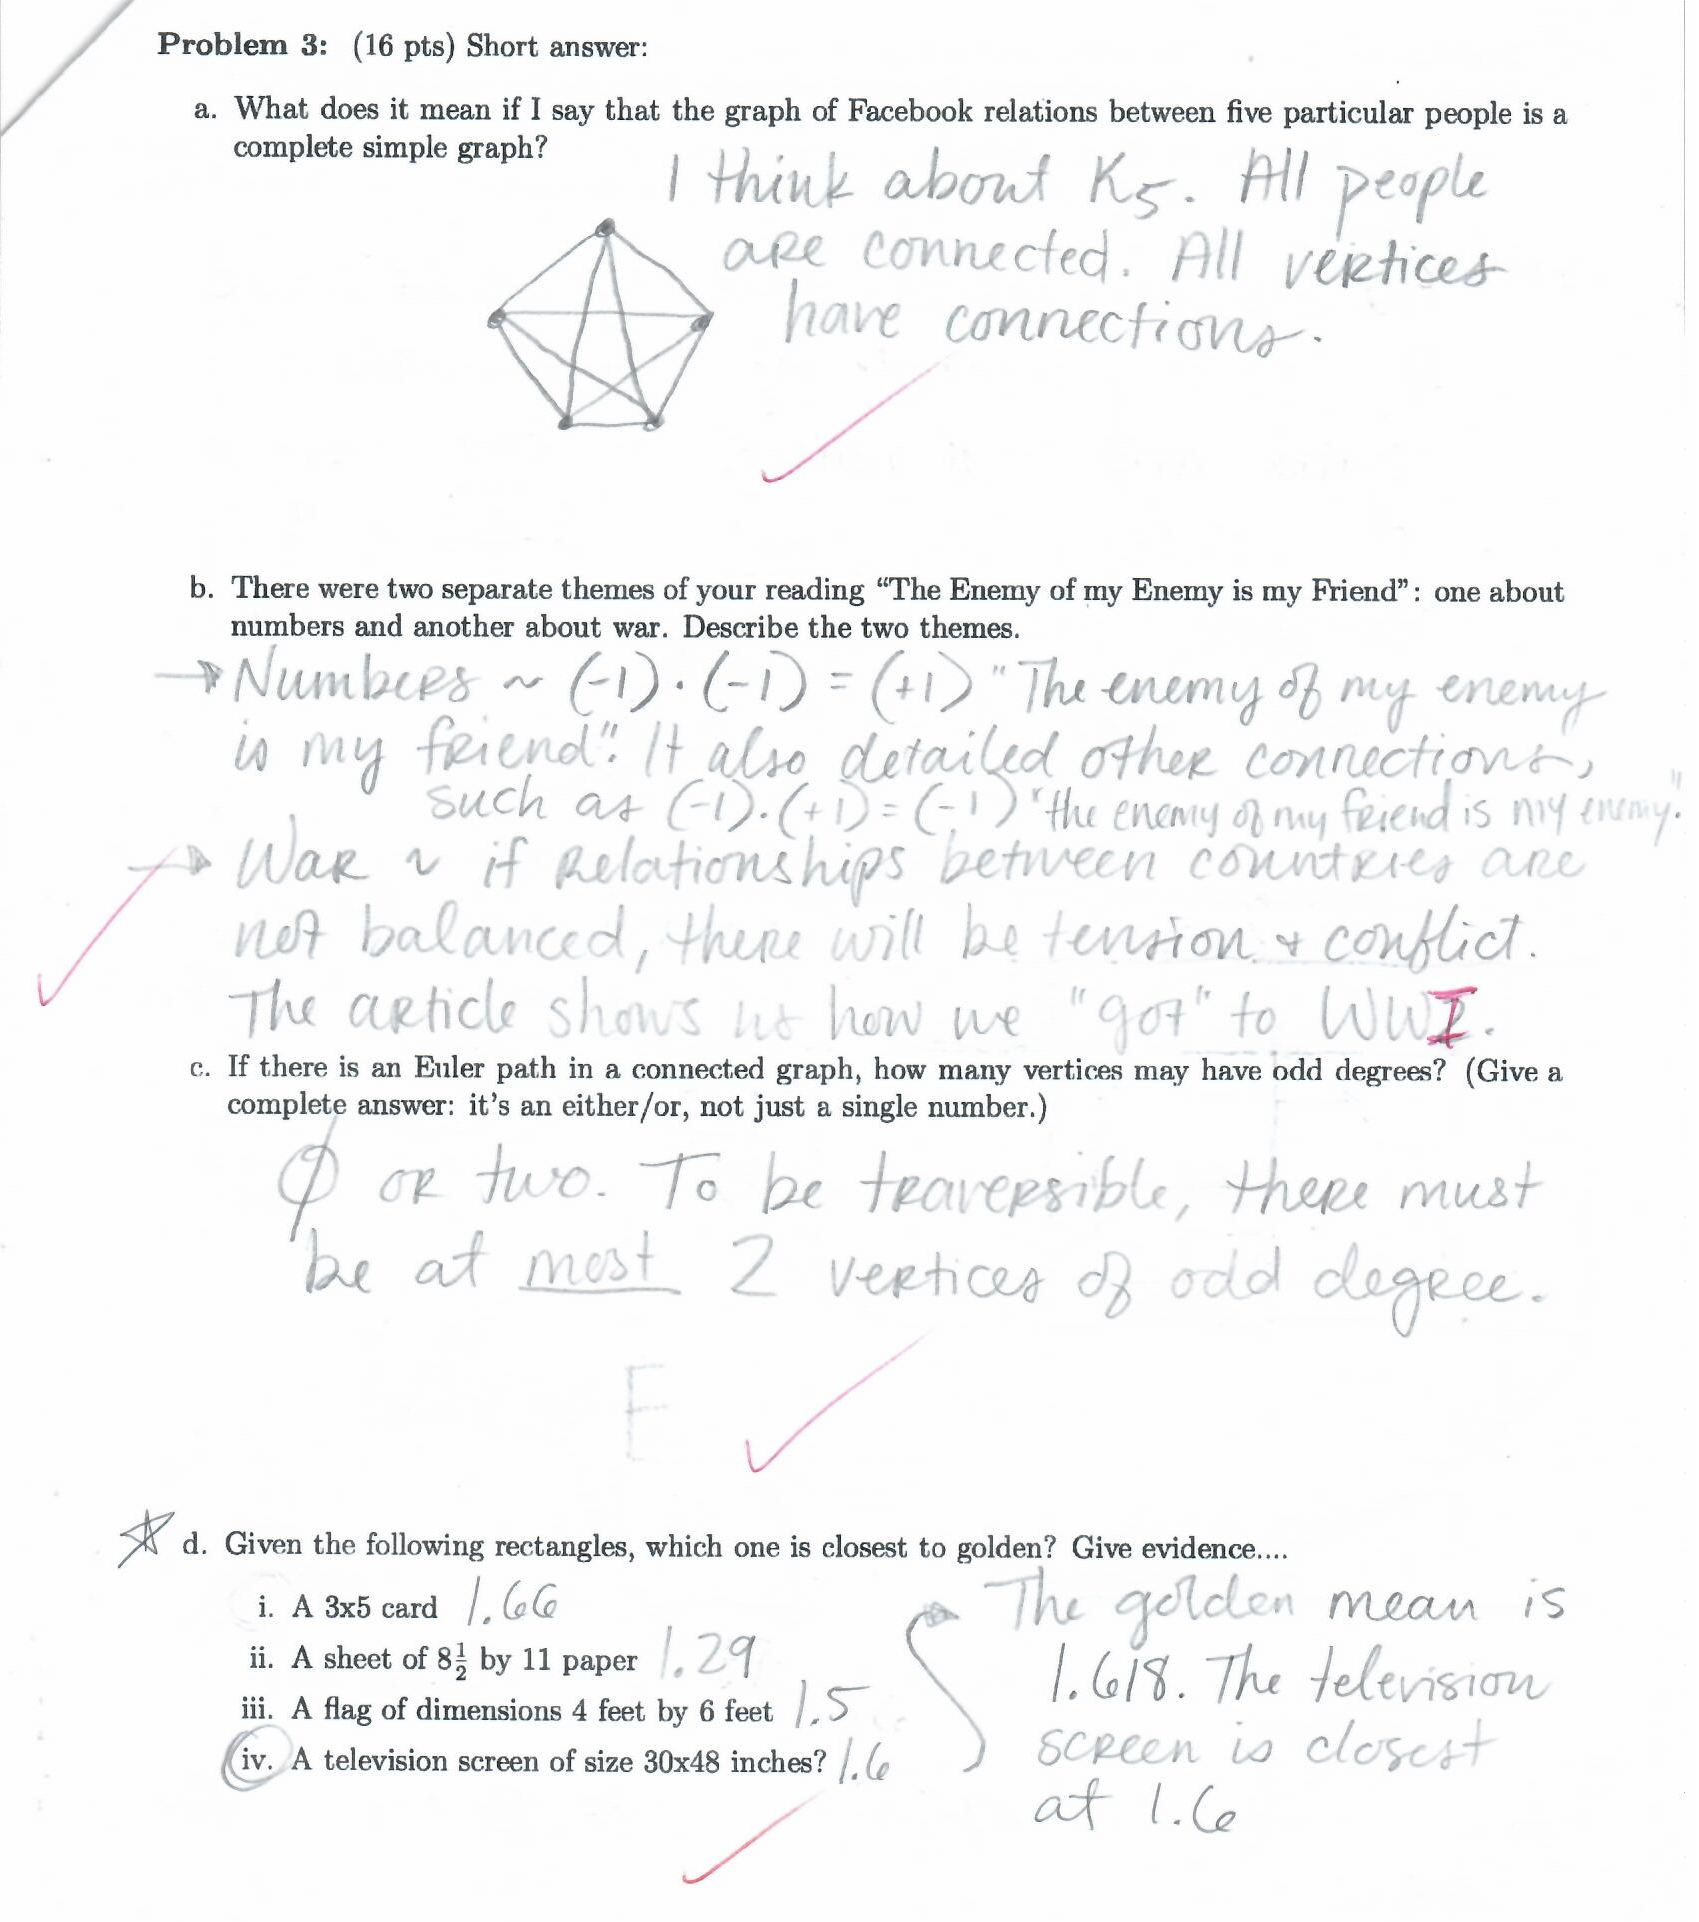 Problem 3: (16 pts) Short answer:
a. What does it mean if I say that the graph of Facebook relations between five particular people is a
complete simple graph?
I think about K5. All people
are connected. All vertices
have connections.
b. There were two separate themes of your reading “The Enemy of my Enemy is my Friend”: one about
numbers and another about war. Describe the two themes.
→ Numbers ~ (-1) · (-1) = (+1) "The enemy of my enemy
is my friend". It also detailed other connections,
such as (-1)·(+1) = (-1) "the enemy of my friend is my enemy."
→ War ~ if relationships between countries are
not balanced, there will be tension + conflict.
The article shows us how we "got" to WWI.
c. If there is an Euler path in a connected graph, how many vertices may have odd degrees? (Give a
complete answer: it's an either/or, not just a single number.)
∅ or two. To be traversible, there must
be at most 2 vertices of odd degree.
d. Given the following rectangles, which one is closest to golden? Give evidence....
i. A 3x5 card 1.66
ii. A sheet of 8½ by 11 paper 1.29
iii. A flag of dimensions 4 feet by 6 feet 1.5
iv. A television screen of size 30x48 inches? 1.6
The golden mean is
1.618. The television
screen is closest
at 1.6